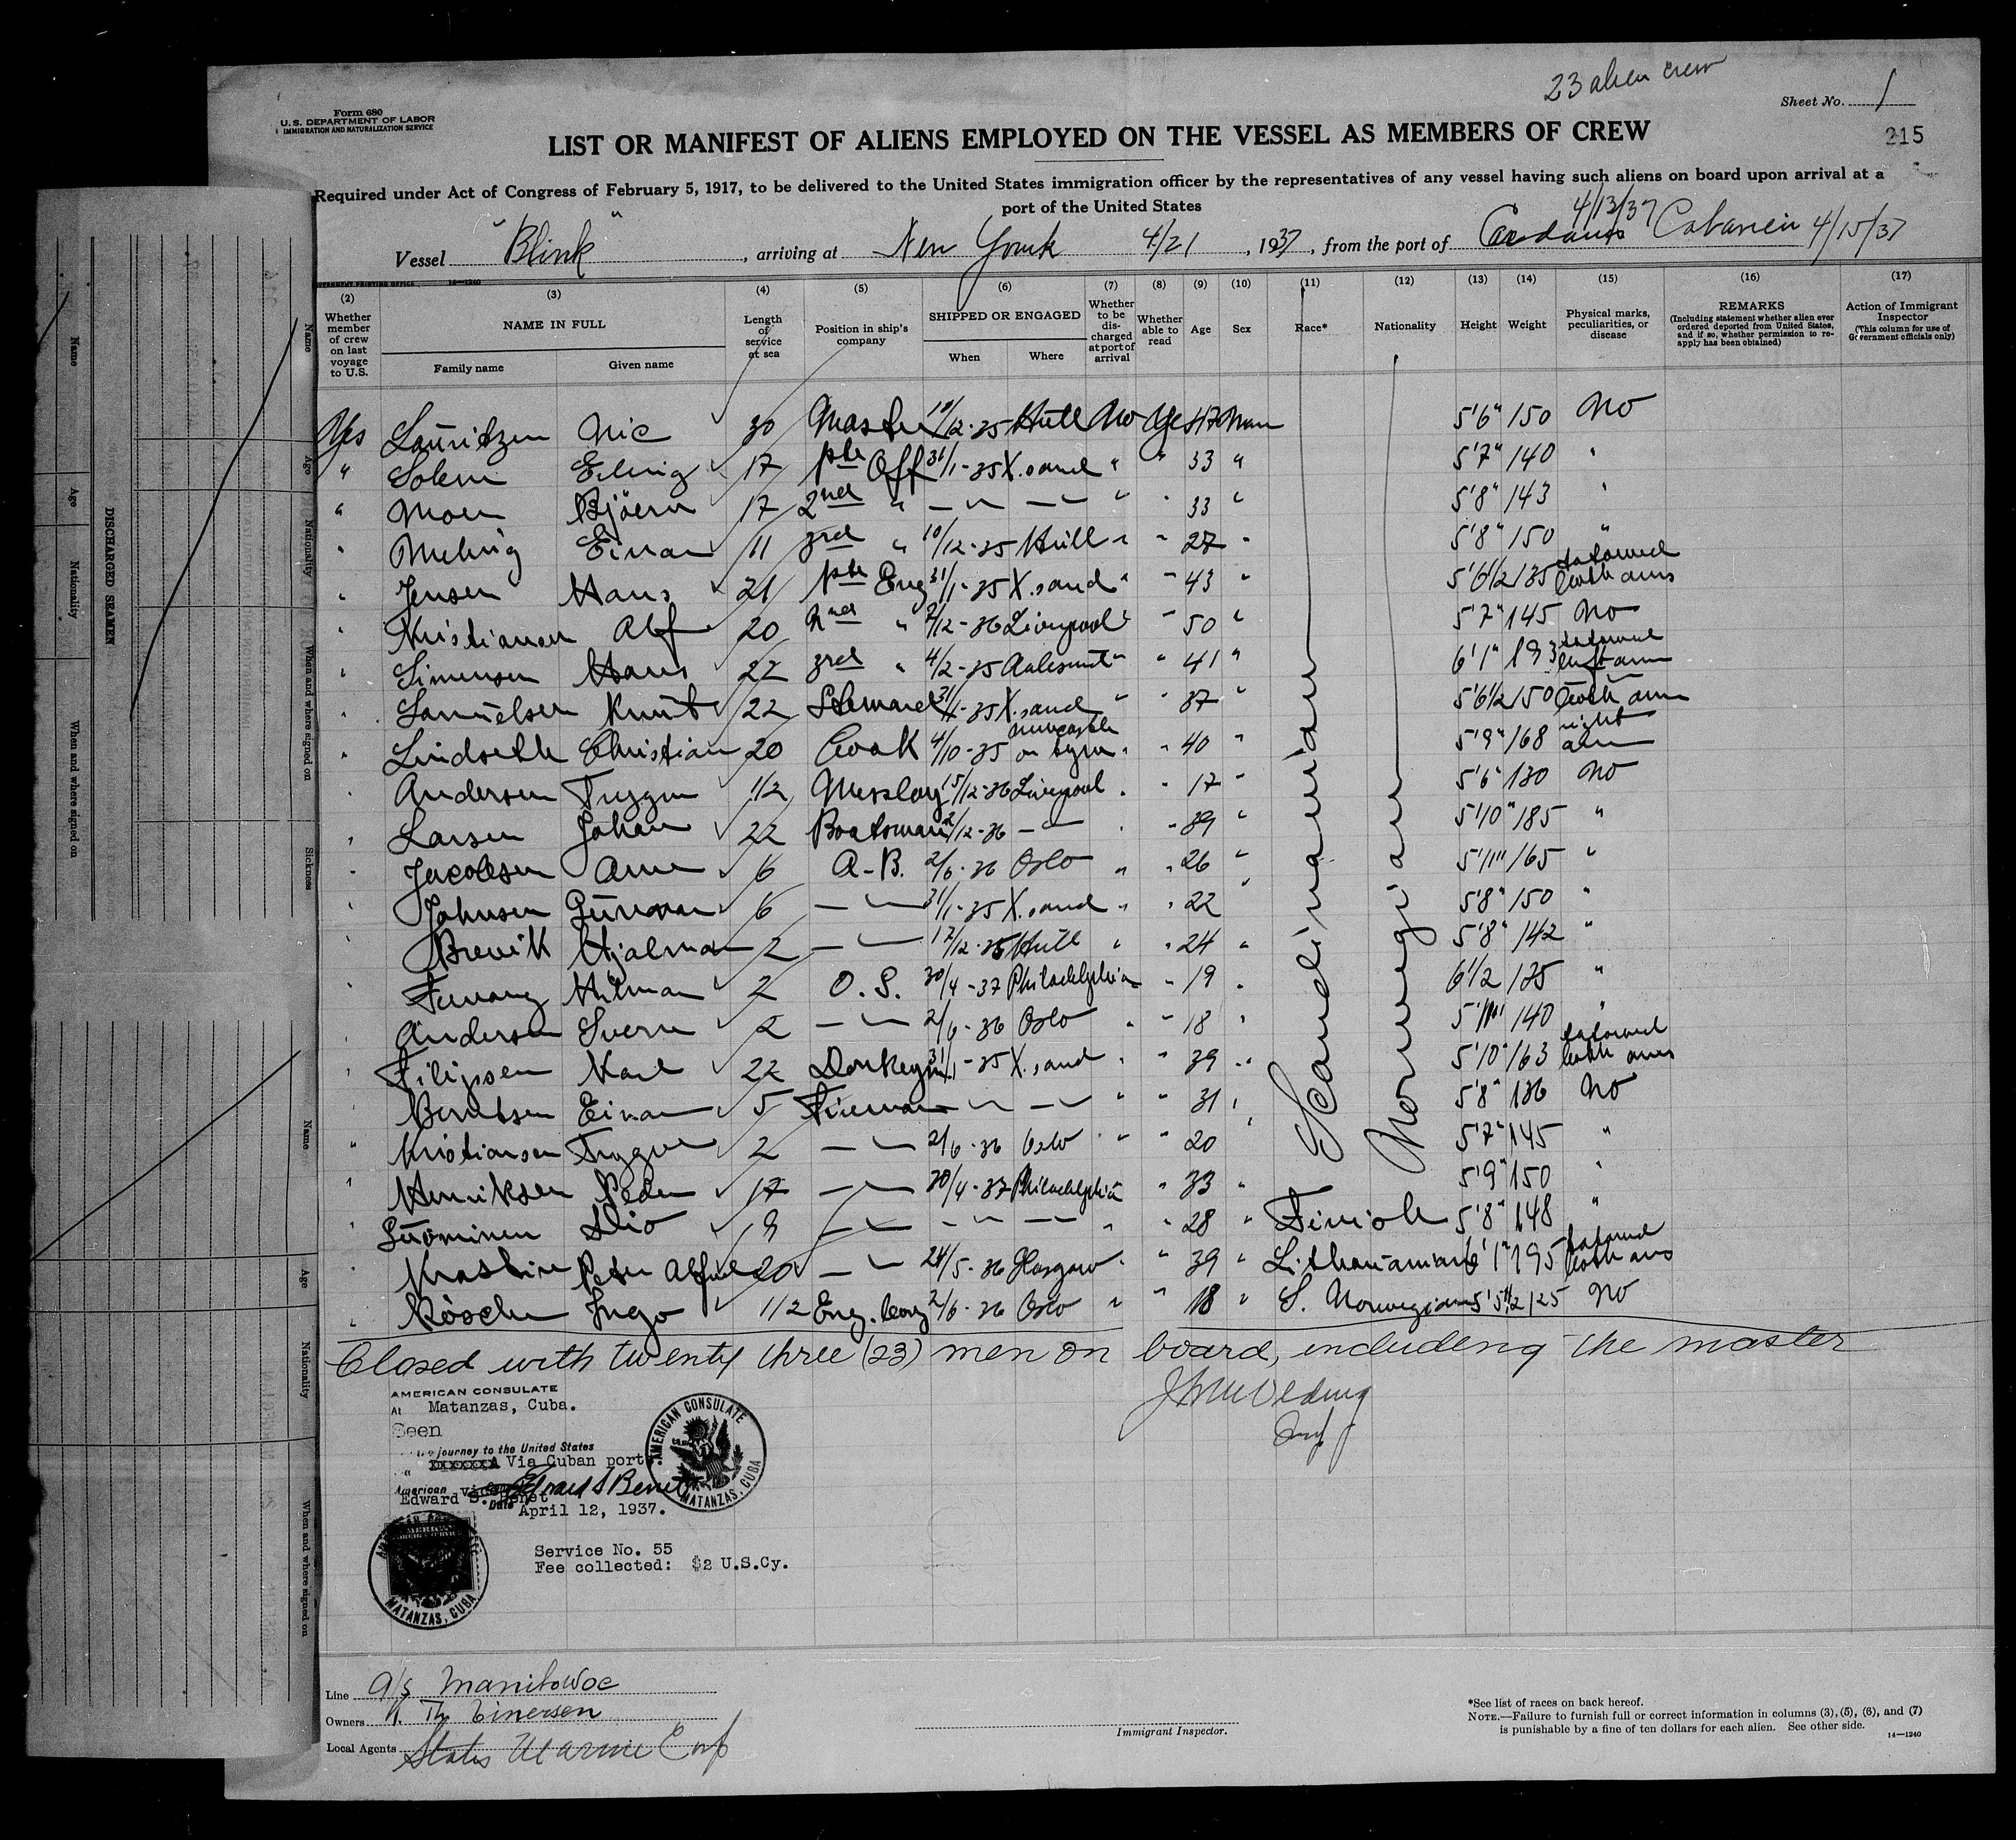 23 alien crew
Form 680
U. S. DEPARTMENT OF LABOR
IMMIGRATION AND NATURALIZATION SERVICE
Sheet No. 1
LIST OR MANIFEST OF ALIENS EMPLOYED ON THE VESSEL AS MEMBERS OF CREW
215
Required under Act of Congress of February 5, 1917, to be delivered to the United States immigration officer by the representatives of any vessel having such aliens on board upon arrival at a
port of the United States
4/13/37
Vessel "Blink", arriving at New York 4/21, 1937, from the port of Cardenas 4/15/37
(2) Whether member of crew on last voyage to U.S.
(3) NAME IN FULL Family name Given name
(4) Length of service at sea
(5) Position in ship's company
(6) SHIPPED OR ENGAGED When Where
(7) Whether to be discharged at port of arrival
(8) Whether able to read
(9) Age
(10) Sex
(11) Race*
(12) Nationality
(13) Height
(14) Weight
(15) Physical marks, peculiarities, or disease
(16) REMARKS (Including statement whether alien ever ordered deported from United States, and if so, whether permission to reapply has been obtained)
(17) Action of Immigrant Inspector (This column for use of Government officials only)
Yes Lauritzen Nic 30 Master 10/12-35 Hull No Yes 47 Man 5'6" 150 No
" Solem Erling 17 Off 31/1-35 X.sand " " 33 " 5'7" 140 "
" Moen Bjöern 17 2nd " — — " " 33 " 5'8" 143 "
" Einar 11 3rd " 10/12-35 Hull " " 27 " 5'8" 150 "
" Jensen Hans 21 Eng 31/1-35 X.sand " " 43 " 5'6 1/2 135 tatooed both arms
" Kristiansen Alf 20 2nd " /12-36 Liverpool " 50 " 5'7" 145 No
" Simensen Hans 22 3rd " 4/2-35 Aalesund " " 41 " 6'1" 193 tatooed left arm
" Samuelsen Knut 22 Steward 31/1-35 X.sand " 37 " 5'6 1/2 150 both arm
" Lindseth Christian 20 Cook 4/10-35 Newcastle on Tyne " " 40 " 5'9" 168 right arm
" Andersen Trygve 1 1/2 Messboy 15/12-36 Liverpool " " 17 " 5'6" 130 No
" Larsen Johan 22 Boatsman /12-36 — " " 39 " 5'10" 185 "
" Jacobsen Arne 6 A-B. 2/6-36 Oslo " " 26 " 5'11" 165 "
" Johnsen Gunnar 6 — 31/1-35 X.sand " " 22 " 5'8" 150 "
" Brevik Hjalmar 2 — 12/12-35 Hull " " 24 " 5'8" 142 "
" Hilmar 2 O.S. 30/4-37 Philadelphia " 19 "
" Andersen Sverre 2 — 2/6-36 Oslo " " 18 " 140 "
" Filipsen Karl 22 Donkeym 31/1-35 X.sand " " 39 " 5'10" 163 tatooed both arms
" Berntsen Einar 5 Fireman — — " " 31 " 5'8" 136 No
" Kristiansen Trygve 2 — 2/6-36 Oslo " " 20 " 5'7" 145 "
" Henriksen Peder 17 — 30/4-37 Philadelphia " 33 " 5'9" 150 "
" Suominen 9 — — — " " 28 " Finish 5'8" 148 "
" Peter Alfred 20 — /5-36 Glasgow " " 39 " Lithauanian 6'1" 195 tatooed both arms
" Ingo 1 1/2 Eng. boy 2/6-36 Oslo " " 18 " S. Norwegian 5'5 1/2 125 No
Scandinavian
Norwegian
Closed with twenty three (23) men on board, includeing the master
AMERICAN CONSULATE
At Matanzas, Cuba.
Seen
journey to the United States
xxxxxxx Via Cuban port
American Vice Consul
Edward S. Benet
Date April 12, 1937.
AMERICAN CONSULATE MATANZAS, CUBA
MATANZAS, CUBA
Service No. 55
Fee collected: $2 U.S.Cy.
Line A/S Manitowoc
Owners Th Einersen
Local Agents States Marine Corp
Immigrant Inspector.
*See list of races on back hereof.
NOTE.—Failure to furnish full or correct information in columns (3), (5), (6), and (7)
is punishable by a fine of ten dollars for each alien. See other side.
14—1240
DISCHARGED SEAMEN
Name
Age
Nationality
When and where signed on
Sickness
Name
Age
Nationality
When and where signed on